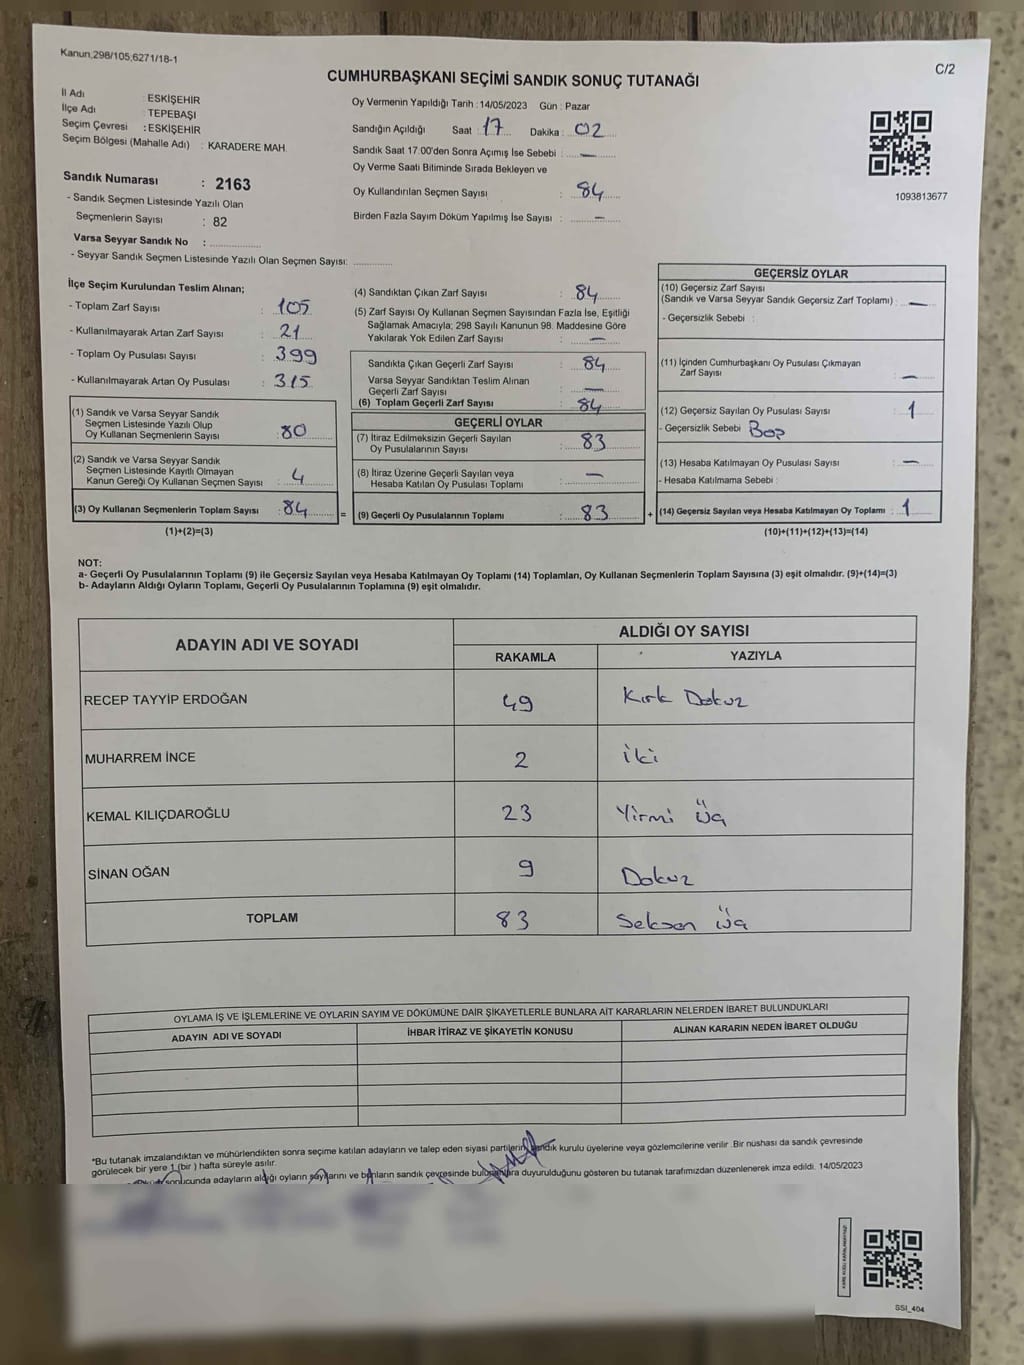 Kanun;298/105;6271/18-1
C/2
CUMHURBAŞKANI SEÇİMİ SANDIK SONUÇ TUTANAĞI
İl Adı : ESKİŞEHİR
İlçe Adı : TEPEBAŞI
Seçim Çevresi : ESKİŞEHİR
Seçim Bölgesi (Mahalle Adı) : KARADERE MAH.
Sandık Numarası : 2163
- Sandık Seçmen Listesinde Yazılı Olan
Seçmenlerin Sayısı : 82
Varsa Seyyar Sandık No : ................
- Seyyar Sandık Seçmen Listesinde Yazılı Olan Seçmen Sayısı: ............
Oy Vermenin Yapıldığı Tarih : 14/05/2023 Gün : Pazar
Sandığın Açıldığı Saat : 17 Dakika : 02
Sandık Saat 17:00'den Sonra Açımış İse Sebebi : —
Oy Verme Saati Bitiminde Sırada Bekleyen ve
Oy Kullandırılan Seçmen Sayısı : 84
Birden Fazla Sayım Döküm Yapılmış İse Sayısı : —
1093813677
İlçe Seçim Kurulundan Teslim Alınan;
- Toplam Zarf Sayısı : 105
- Kullanılmayarak Artan Zarf Sayısı : 21
- Toplam Oy Pusulası Sayısı : 399
- Kullanılmayarak Artan Oy Pusulası : 315
(1) Sandık ve Varsa Seyyar Sandık
Seçmen Listesinde Yazılı Olup
Oy Kullanan Seçmenlerin Sayısı : 80
(2) Sandık ve Varsa Seyyar Sandık
Seçmen Listesinde Kayıtlı Olmayan
Kanun Gereği Oy Kullanan Seçmen Sayısı : 4
(3) Oy Kullanan Seçmenlerin Toplam Sayısı : 84
(1)+(2)=(3)
(4) Sandıktan Çıkan Zarf Sayısı : 84
(5) Zarf Sayısı Oy Kullanan Seçmen Sayısından Fazla İse, Eşitliği
Sağlamak Amacıyla; 298 Sayılı Kanunun 98. Maddesine Göre
Yakılarak Yok Edilen Zarf Sayısı : —
Sandıkta Çıkan Geçerli Zarf Sayısı : 84
Varsa Seyyar Sandıktan Teslim Alınan
Geçerli Zarf Sayısı : —
(6) Toplam Geçerli Zarf Sayısı : 84
GEÇERLİ OYLAR
(7) İtiraz Edilmeksizin Geçerli Sayılan
Oy Pusulalarının Sayısı : 83
(8) İtiraz Üzerine Geçerli Sayılan veya
Hesaba Katılan Oy Pusulası Toplamı : —
= (9) Geçerli Oy Pusulalarının Toplamı : 83
GEÇERSİZ OYLAR
(10) Geçersiz Zarf Sayısı
(Sandık ve Varsa Seyyar Sandık Geçersiz Zarf Toplamı) : —
- Geçersizlik Sebebi :
(11) İçinden Cumhurbaşkanı Oy Pusulası Çıkmayan
Zarf Sayısı : —
(12) Geçersiz Sayılan Oy Pusulası Sayısı : 1
- Geçersizlik Sebebi Boş
(13) Hesaba Katılmayan Oy Pusulası Sayısı : —
- Hesaba Katılmama Sebebi :
+ (14) Geçersiz Sayılan veya Hesaba Katılmayan Oy Toplamı : 1
(10)+(11)+(12)+(13)=(14)
NOT:
a- Geçerli Oy Pusulalarının Toplamı (9) ile Geçersiz Sayılan veya Hesaba Katılmayan Oy Toplamı (14) Toplamları, Oy Kullanan Seçmenlerin Toplam Sayısına (3) eşit olmalıdır. (9)+(14)=(3)
b- Adayların Aldığı Oyların Toplamı, Geçerli Oy Pusulalarının Toplamına (9) eşit olmalıdır.
ADAYIN ADI VE SOYADI ALDIĞI OY SAYISI
RAKAMLA YAZIYLA
RECEP TAYYİP ERDOĞAN 49 Kırk Dokuz
MUHARREM İNCE 2 İki
KEMAL KILIÇDAROĞLU 23 Yirmi üç
SİNAN OĞAN 9 Dokuz
TOPLAM 83 Seksen üç
OYLAMA İŞ VE İŞLEMLERİNE VE OYLARIN SAYIM VE DÖKÜMÜNE DAİR ŞİKAYETLERLE BUNLARA AİT KARARLARIN NELERDEN İBARET BULUNDUKLARI
ADAYIN ADI VE SOYADI İHBAR İTİRAZ VE ŞİKAYETİN KONUSU ALINAN KARARIN NEDEN İBARET OLDUĞU
*Bu tutanak imzalandıktan ve mühürlendikten sonra seçime katılan adayların ve talep eden siyasi partilerin sandık kurulu üyelerine veya gözlemcilerine verilir .Bir nüshası da sandık çevresinde
görülecek bir yere 1 (bir ) hafta süreyle asılır.
sonucunda adayların aldığı oyların sayılarını ve bunların sandık çevresinde bulunanlara duyurulduğunu gösteren bu tutanak tarafımızdan düzenlenerek imza edildi. 14/05/2023
SSI_404